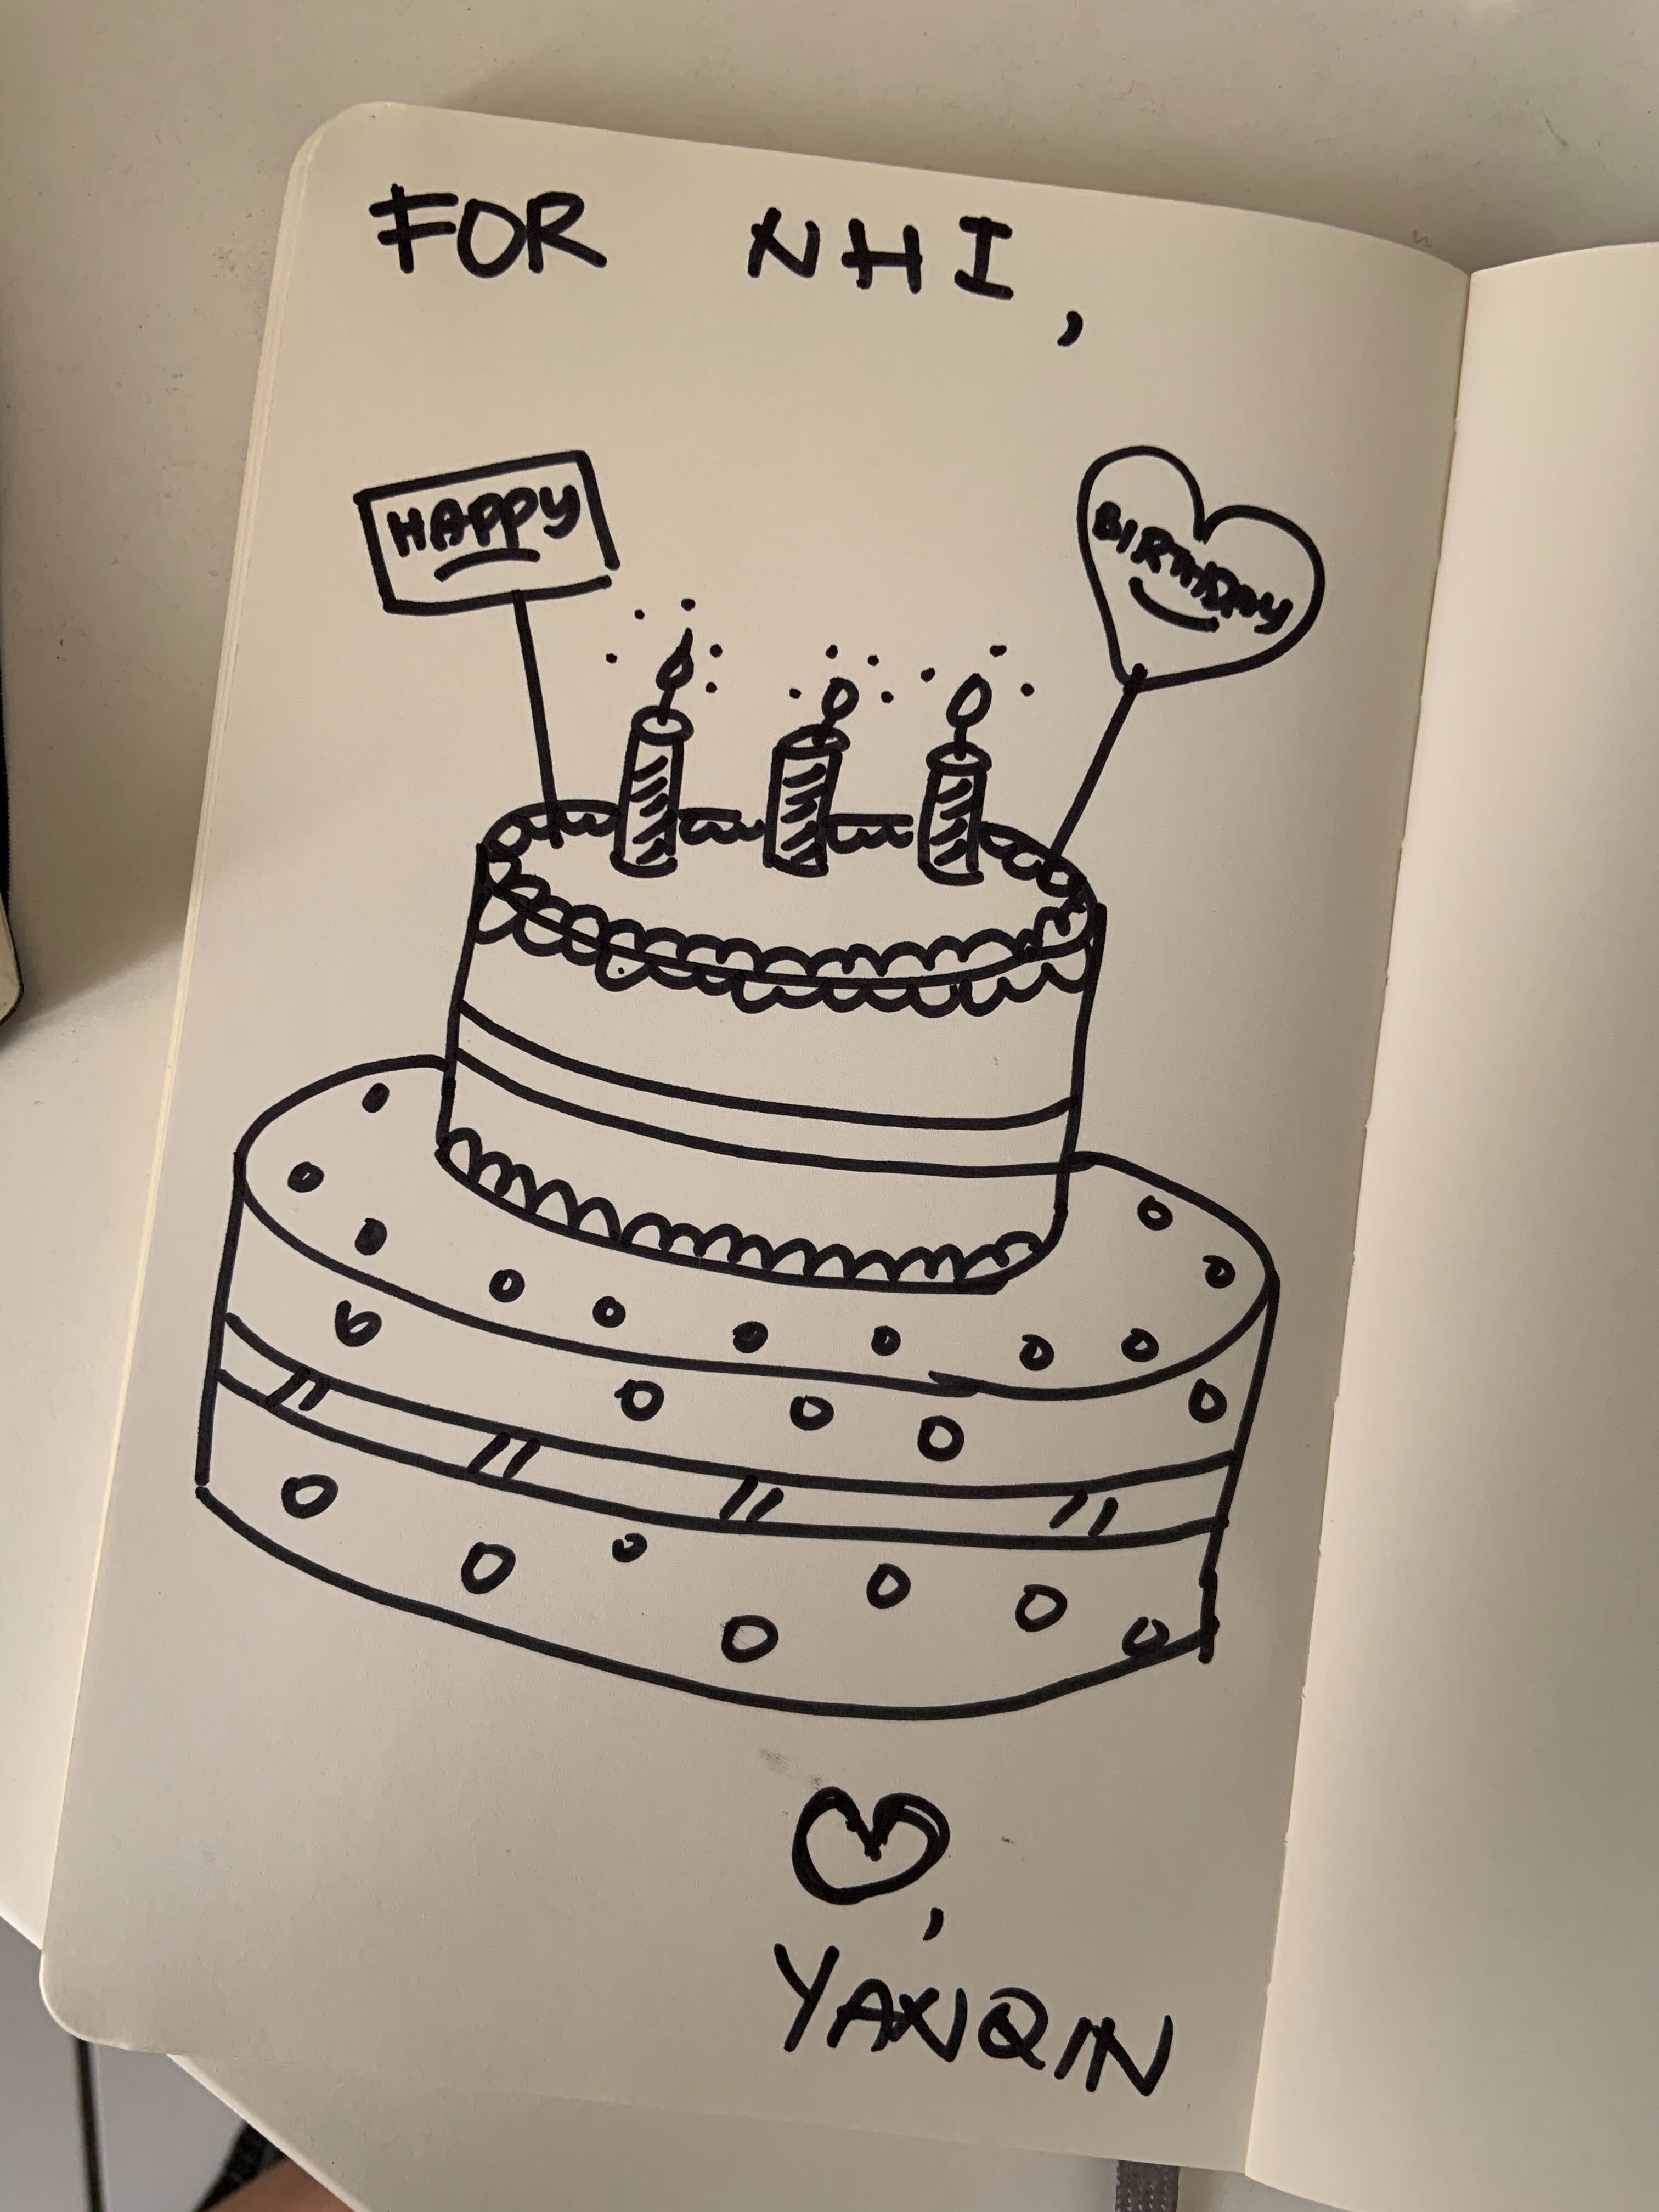 FOR NHI,
HAPPY
BIRTHDAY
♡,
YAXQIN